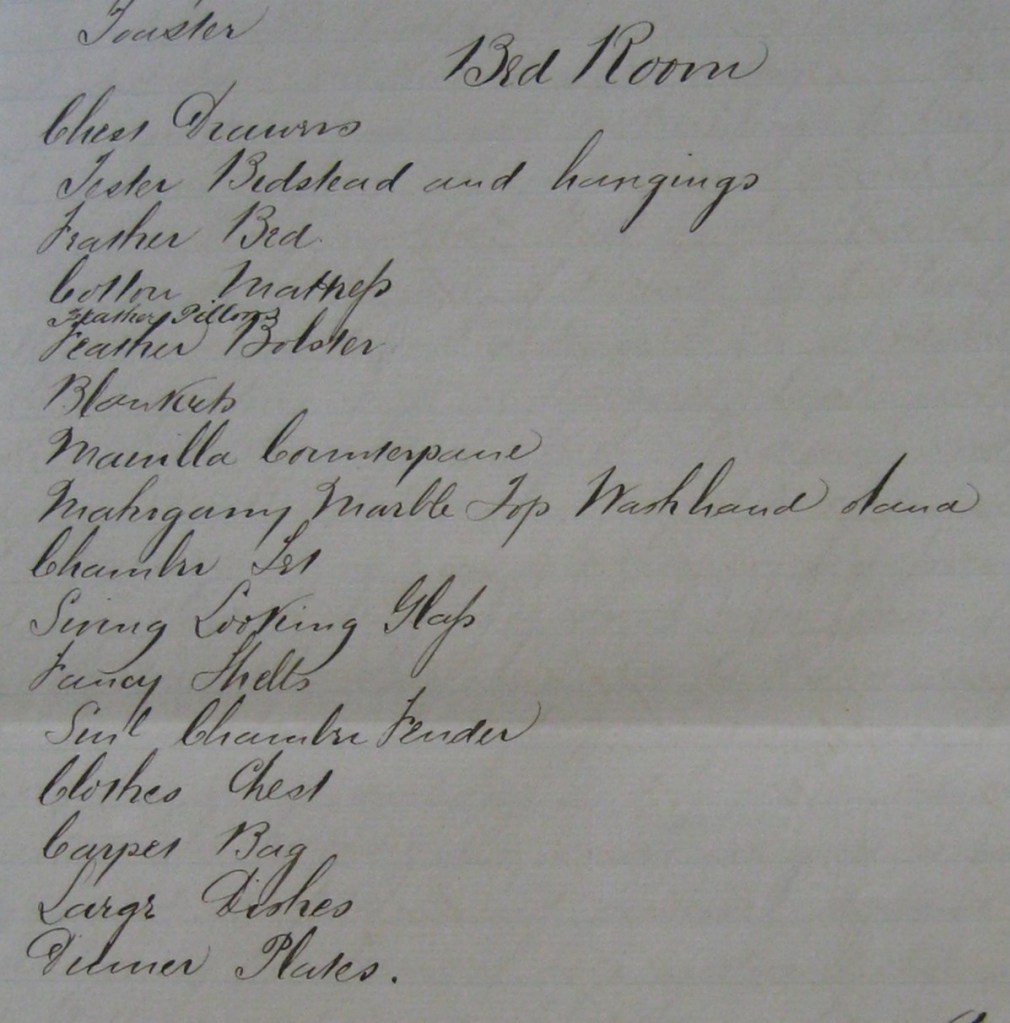 Toaster
Bed Room
Chest Drawers
Tester Bedstead and hangings
Feather Bed
Cotton Mattress
Feather Pillows
Feather Bolster
Blankets
Manilla Counterpane
Mahogany Marble Top Washhand stand
Chamber Set
Swing Looking Glass
Fancy Shelts
Chamber Fender
Clothes Chest
Carpet Bag
Large Dishes
Dinner Plates.